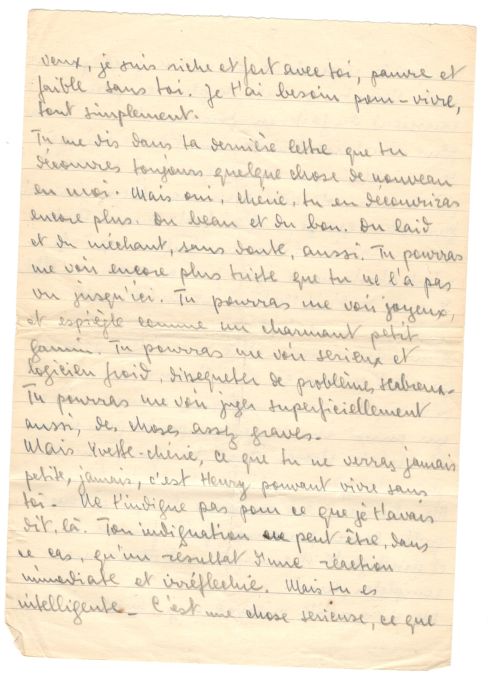 veux, je suis riche et fort avec toi, pauvre et
faible sans toi. Je t'ai besoin pour-vivre,
tout simplement.
Tu me dis dans ta dernière lettre que tu
découvres toujours quelque chose de nouveau
en moi. Mais oui, chérie, tu en découvriras
encore plus. Du beau et du bon. Du laid
et du méchant, sans doute, aussi. Tu pourras
me voir encore plus triste que tu ne l'a pas
vu jusqu'ici. Tu pourras me voir joyeux,
et espiègle comme un charmant petit
gamin. Tu pourras me voir serieux et
logicien froid, dissequeter de problèmes scabreux.
Tu pourras me voir juger superficiellement
aussi, des choses assez graves.
Mais Yvette-chérie, ce que tu ne verras jamais
petite, jamais, c'est Henry pouvant vivre sans
toi. Ne t'indigne pas pour ce que je t'avais
dit, là. Ton indignation peut être, dans
ce cas, qu'un resultat d'une réaction
immediate et irréflechie. Mais tu es
intelligente. C'est une chose serieuse, ce que